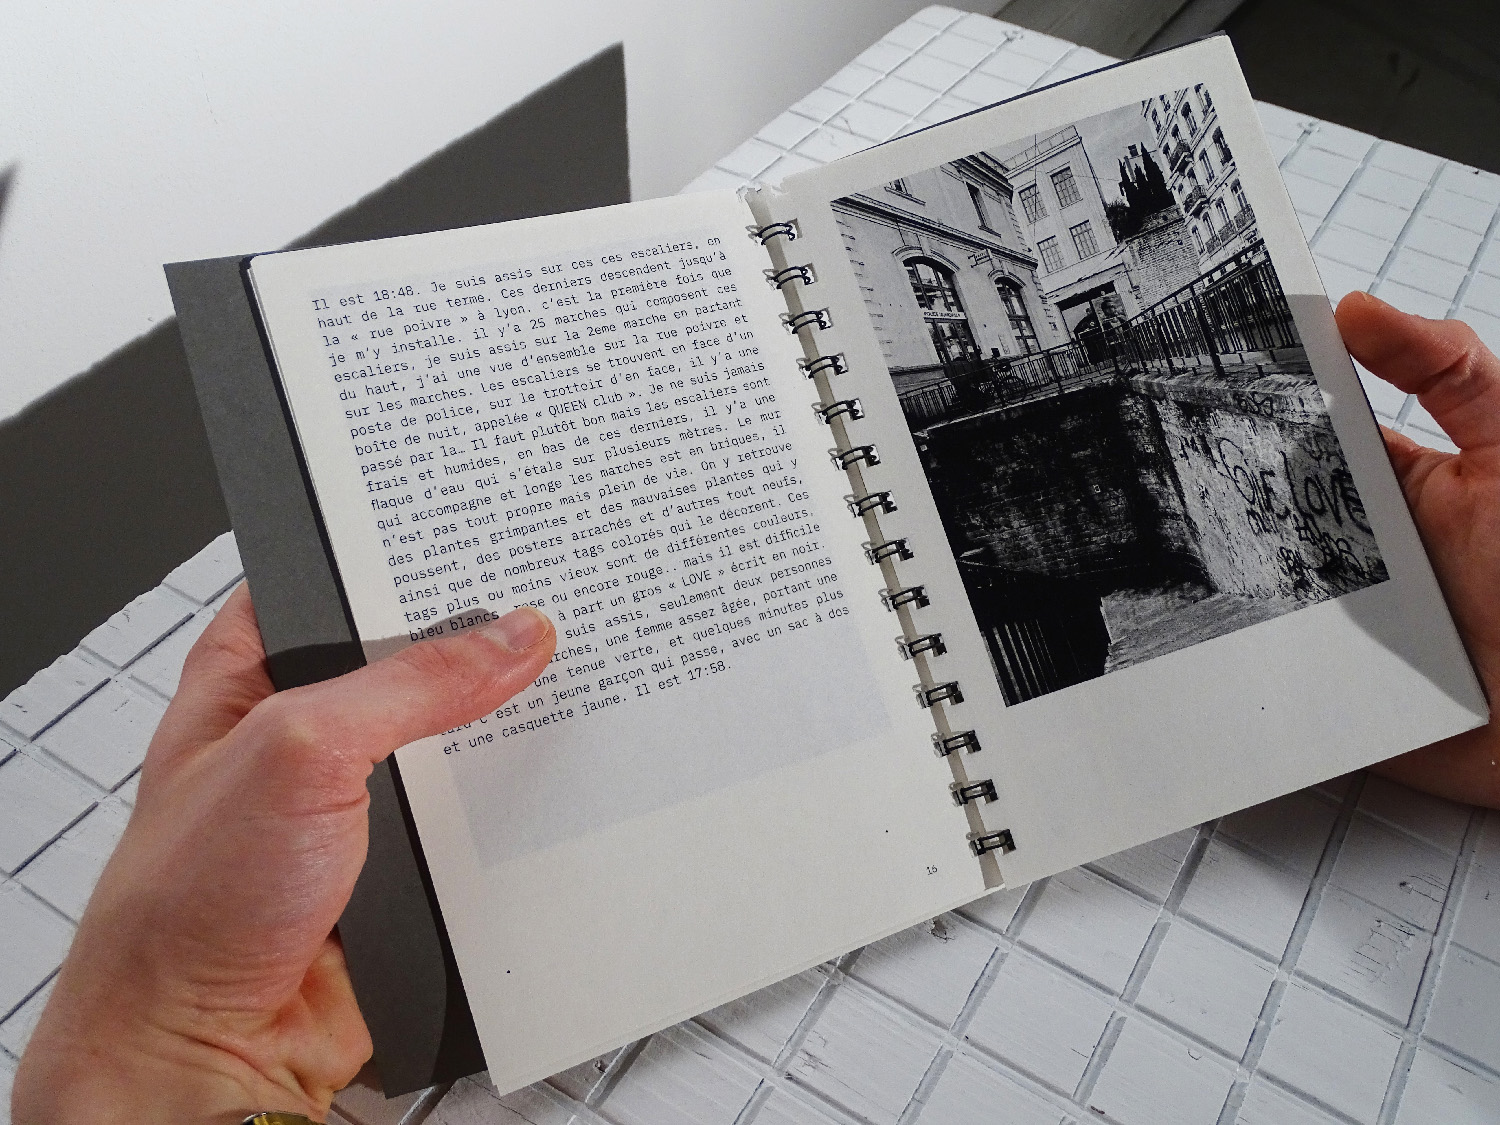 Il est 18:48. Je suis assis sur ces ces escaliers, en
haut de la rue terme. Ces derniers descendent jusqu'à
la « rue poivre » à lyon. c'est la première fois que
je m'y installe. il y'a 25 marches qui composent ces
escaliers, je suis assis sur la 2eme marche en partant
du haut, j'ai une vue d'ensemble sur la rue poivre et
sur les marches. Les escaliers se trouvent en face d'un
poste de police, sur le trottoir d'en face, il y'a une
boîte de nuit, appelée « QUEEN club ». Je ne suis jamais
passé par la… Il faut plutôt bon mais les escaliers sont
frais et humides, en bas de ces derniers, il y'a une
flaque d'eau qui s'étale sur plusieurs mètres. Le mur
qui accompagne et longe les marches est en briques, il
n'est pas tout propre mais plein de vie. On y retrouve
des plantes grimpantes et des mauvaises plantes qui y
poussent, des posters arrachés et d'autres tout neufs,
ainsi que de nombreux tags colorés qui le décorent. Ces
tags plus ou moins vieux sont de différentes couleurs,
bleu blancs, rose ou encore rouge.. mais il est difficile
à part un gros « LOVE » écrit en noir.
suis assis, seulement deux personnes
une femme assez âgée, portant une
une tenue verte, et quelques minutes plus
c'est un jeune garçon qui passe, avec un sac à dos
et une casquette jaune. Il est 17:58.
16
POLICE MUNICIPALE
LOVE